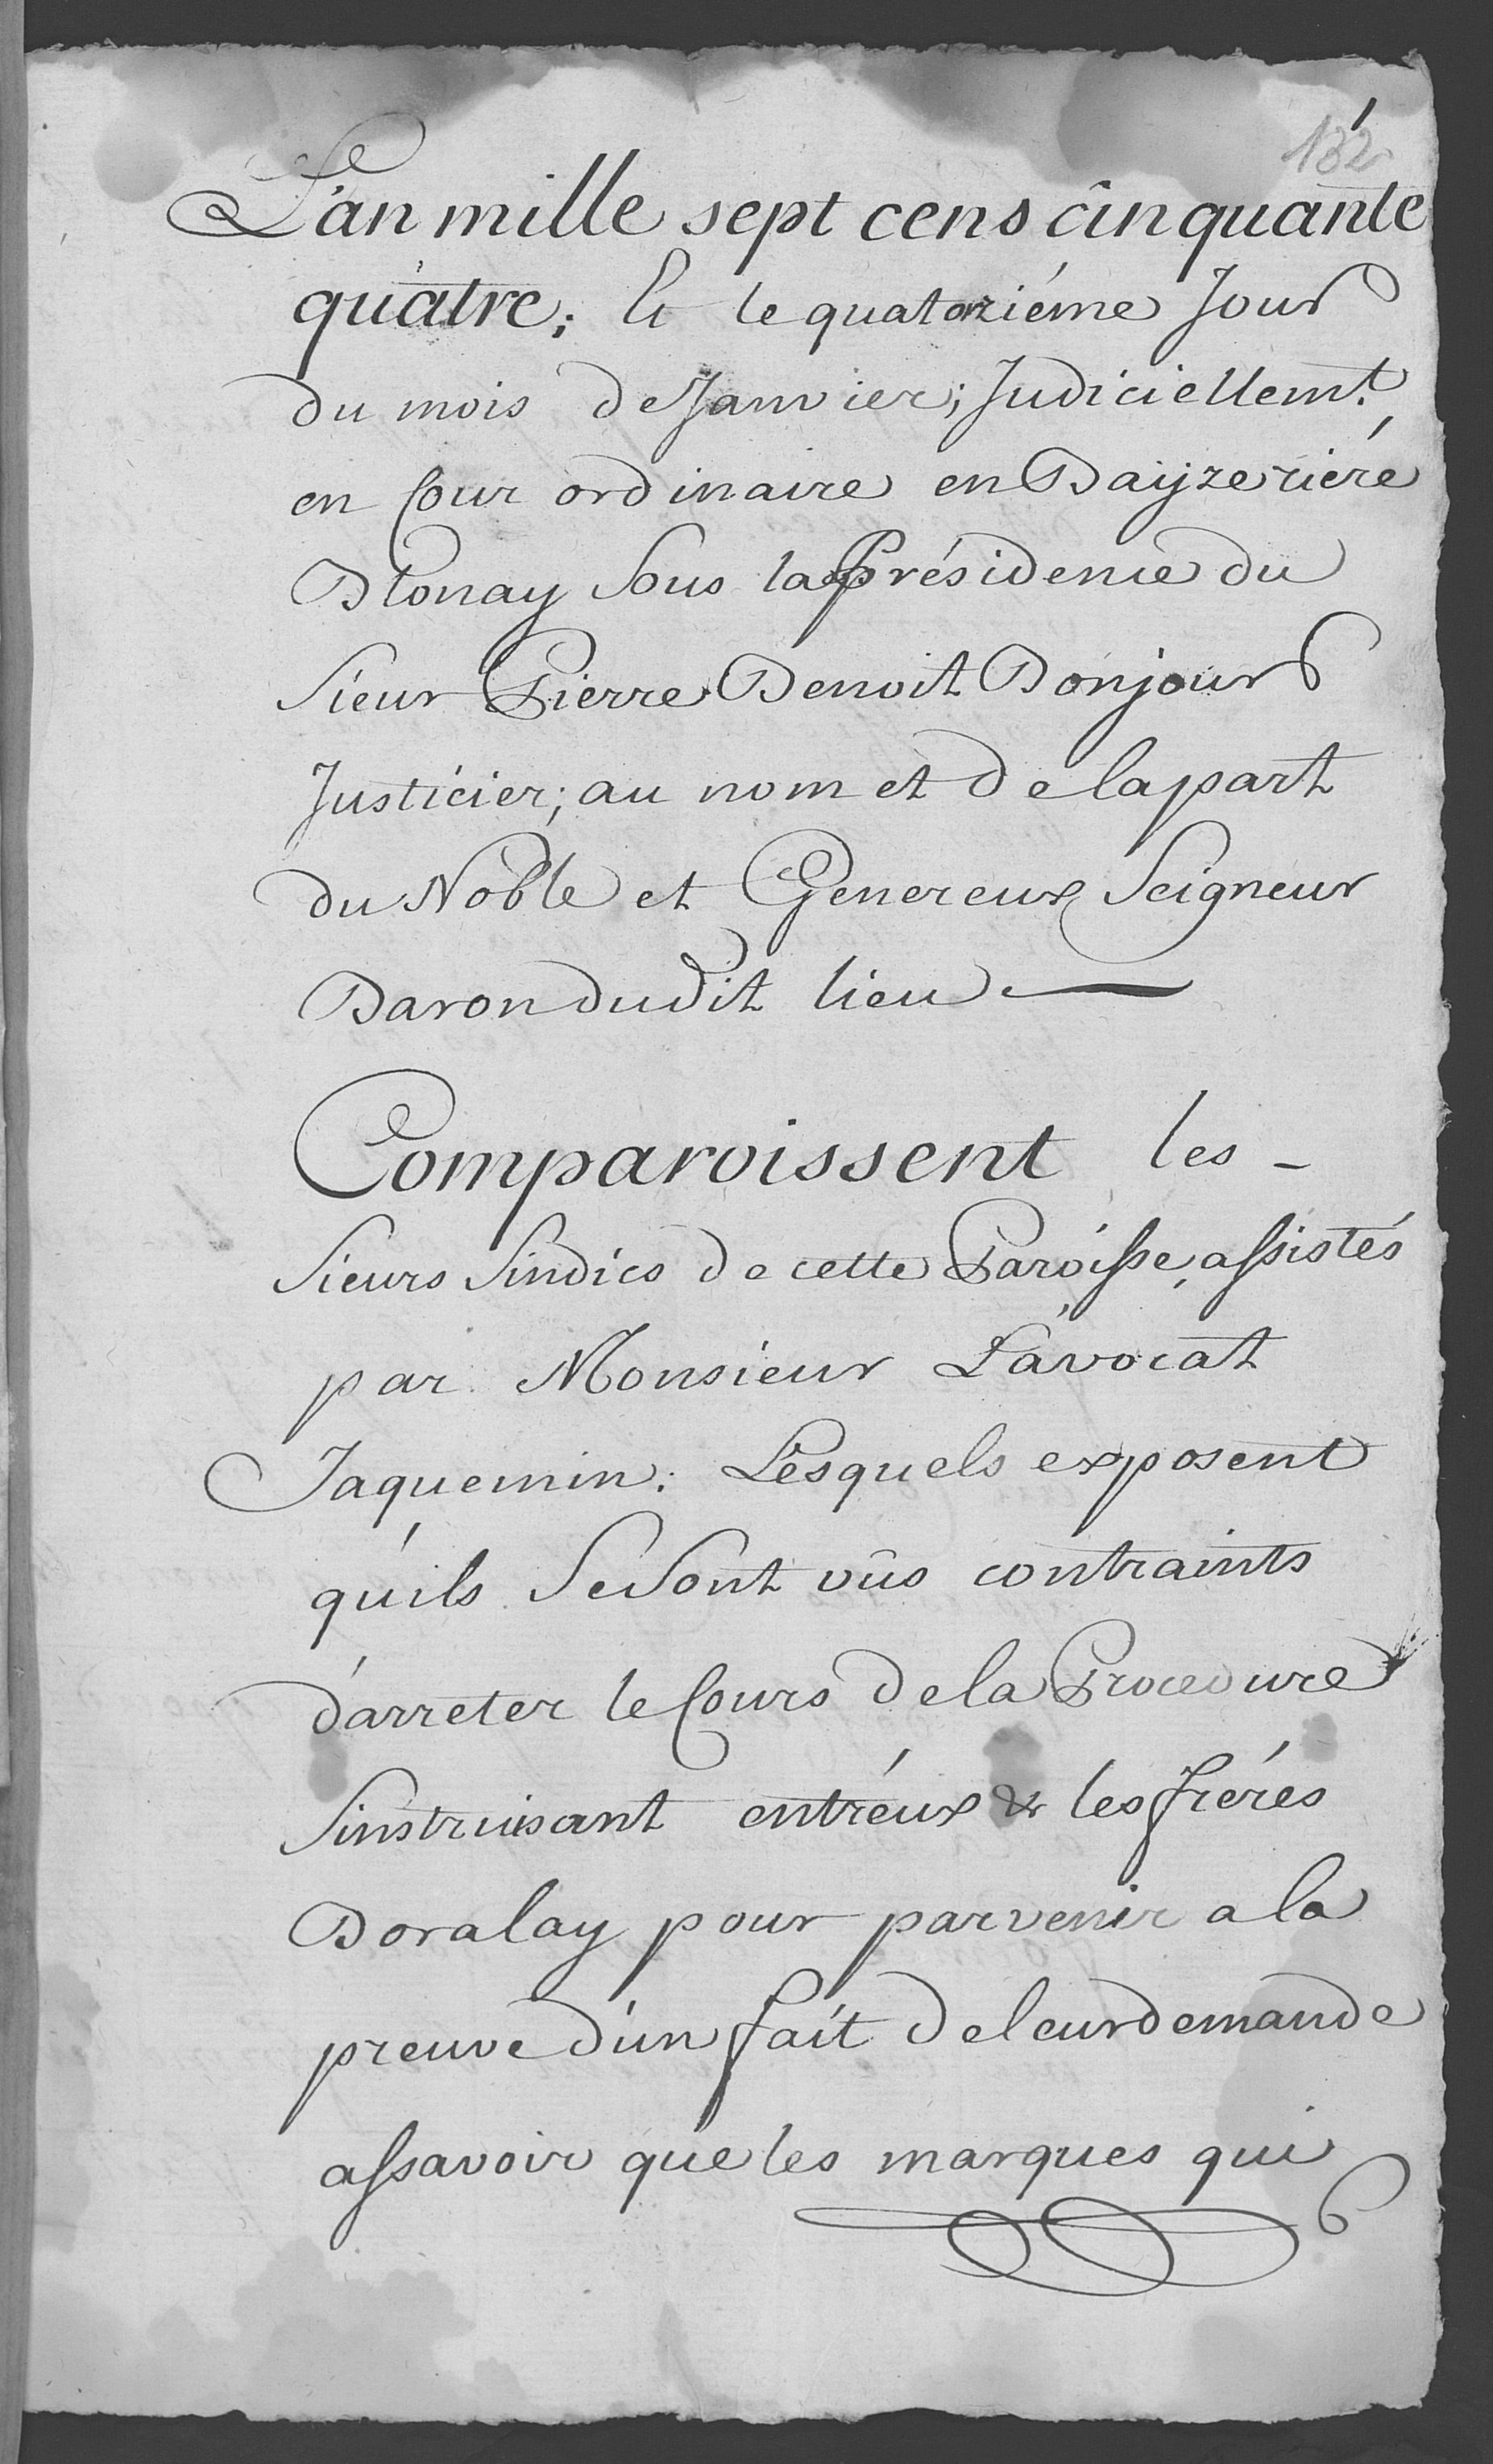 132
L'an mille sept cens cinquante
quatre; Et le quatorziéme Jour
du mois de Janvier; Judiciellem.t
en Cour ordinaire en Bayze riére
Blonay sous la Présidence du
Sieur Pierre Benoit Bonjour
Justicier; au nom et de la part
du Noble et Genereux Seigneur
Baron dudit lieu
Comparoissent les -
Sieurs Sindics de cette Paroisse, assistés
par Monsieur L'avocat
Jaquemin: Lesquels exposent
qu'ils se sont vûs contraints
d'arreter le Cours de la Procedure
s'instruisant entr'eux & les fréres
Doralay pour parvenir a la
preuve d'un fait de leur demande
assavoir que les marques qui